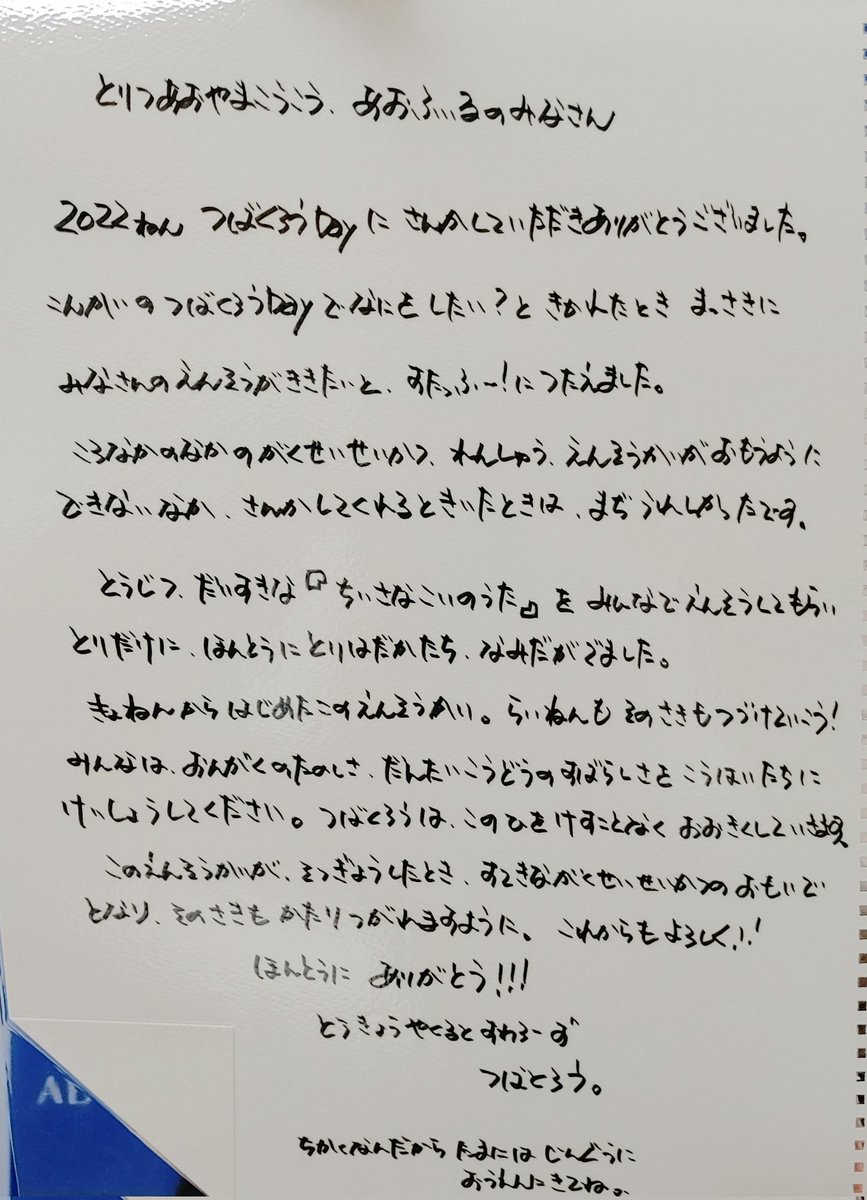 とりつあおやまこうこう、あおふぃるのみなさん
2022ねん つばくろうDayに さんかしていただきありがとうございました。
こんかいの つばくろうDayで なにをしたい?と きかれたとき まっさきに
みなさんのえんそうがききたいと、すたっふー!につたえました。
ころなかのなかのがくせいせいかつ、れんしゅう、えんそうかいがおもうように
できないなか、さんかしてくれるときいたときは、まぢうれしかったです。
とうじつ、だいすきな『ちいさなこいのうた』を みんなでえんそうしてもらい
とりだけに、ほんとうにとりはだがたち、なみだがでました。
きょねんからはじめたこのえんそうかい。らいねんも そのさきもつづけていこう!
みんなは、おんがくのたのしさ、だんたいこうどうのすばらしさを こうはいたちに
けいしょうしてください。つばくろうは、このひをけすことなく おおきくしていきます
このえんそうかいが、そつぎょうしたとき、すてきながくせいせいかつの おもいで
となり、そのさきも かたりつがれますように。 これからも よろしく!!
ほんとうに ありがとう!!!
とうきょうやくるとすわろーず
つばくろう。
ちかくなんだから たまには じんぐうに
おうえんにきてね。
AL